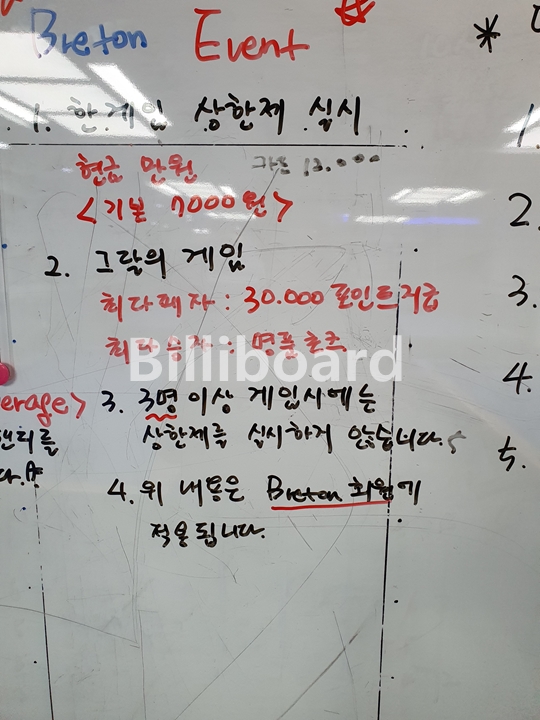 Breton Event
1. 한게임 상한제 실시
현금 만원 카드 12.000
<기본 7000원>
2. 그달의 게임
최다패자 : 30.000 포인트지급
최다승자 : 명품초크
Billiboard
3. 3명이상 게임시에는
상한제를 실시하지 않습니다.
4. 위 내용은 Breton 회원에
적용됩니다.
erage>
*
1.
2.
3.
4.
5.